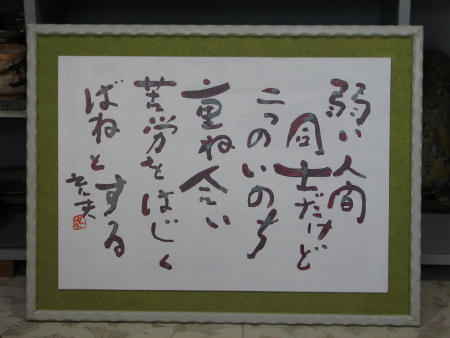 弱い人間
同士だけど
二つのいのち
重ね合い
苦労をはじく
ばねとする